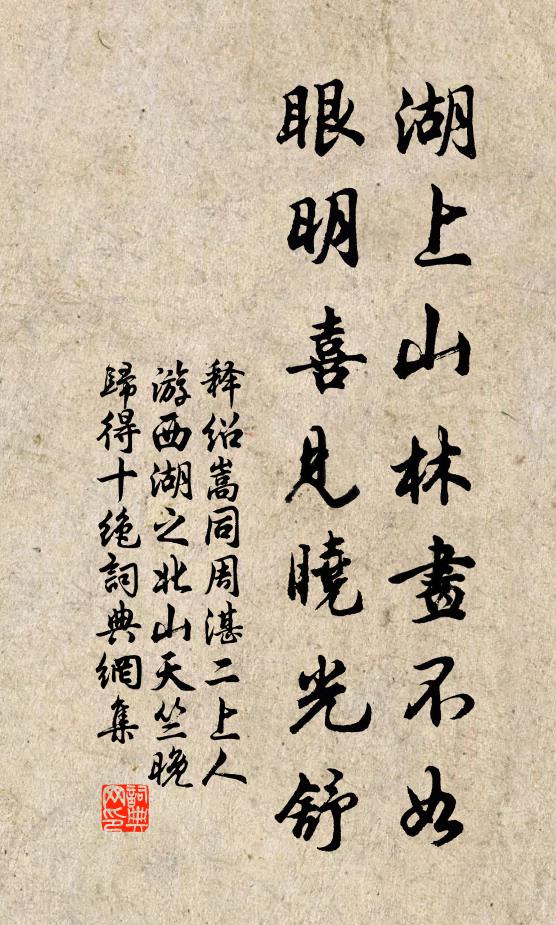 湖上山林畫不如
眼明喜見曉光舒
释绍嵩同周湛二上人
游西湖之北山天竺晚
歸得十绝詞典網集
詞典网印